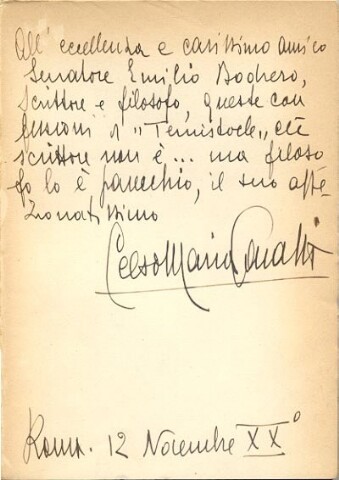 All' eccellenza e carissimo amico
Senatore Emilio Bodrero,
scrittore e filosofo, queste con
fessioni d' "Temistocle" che
scrittore non è... ma filoso
fo lo è parecchio, il suo affe
zionatissimo
Celso Maria Garatti
Roma. 12 Novembre XX°